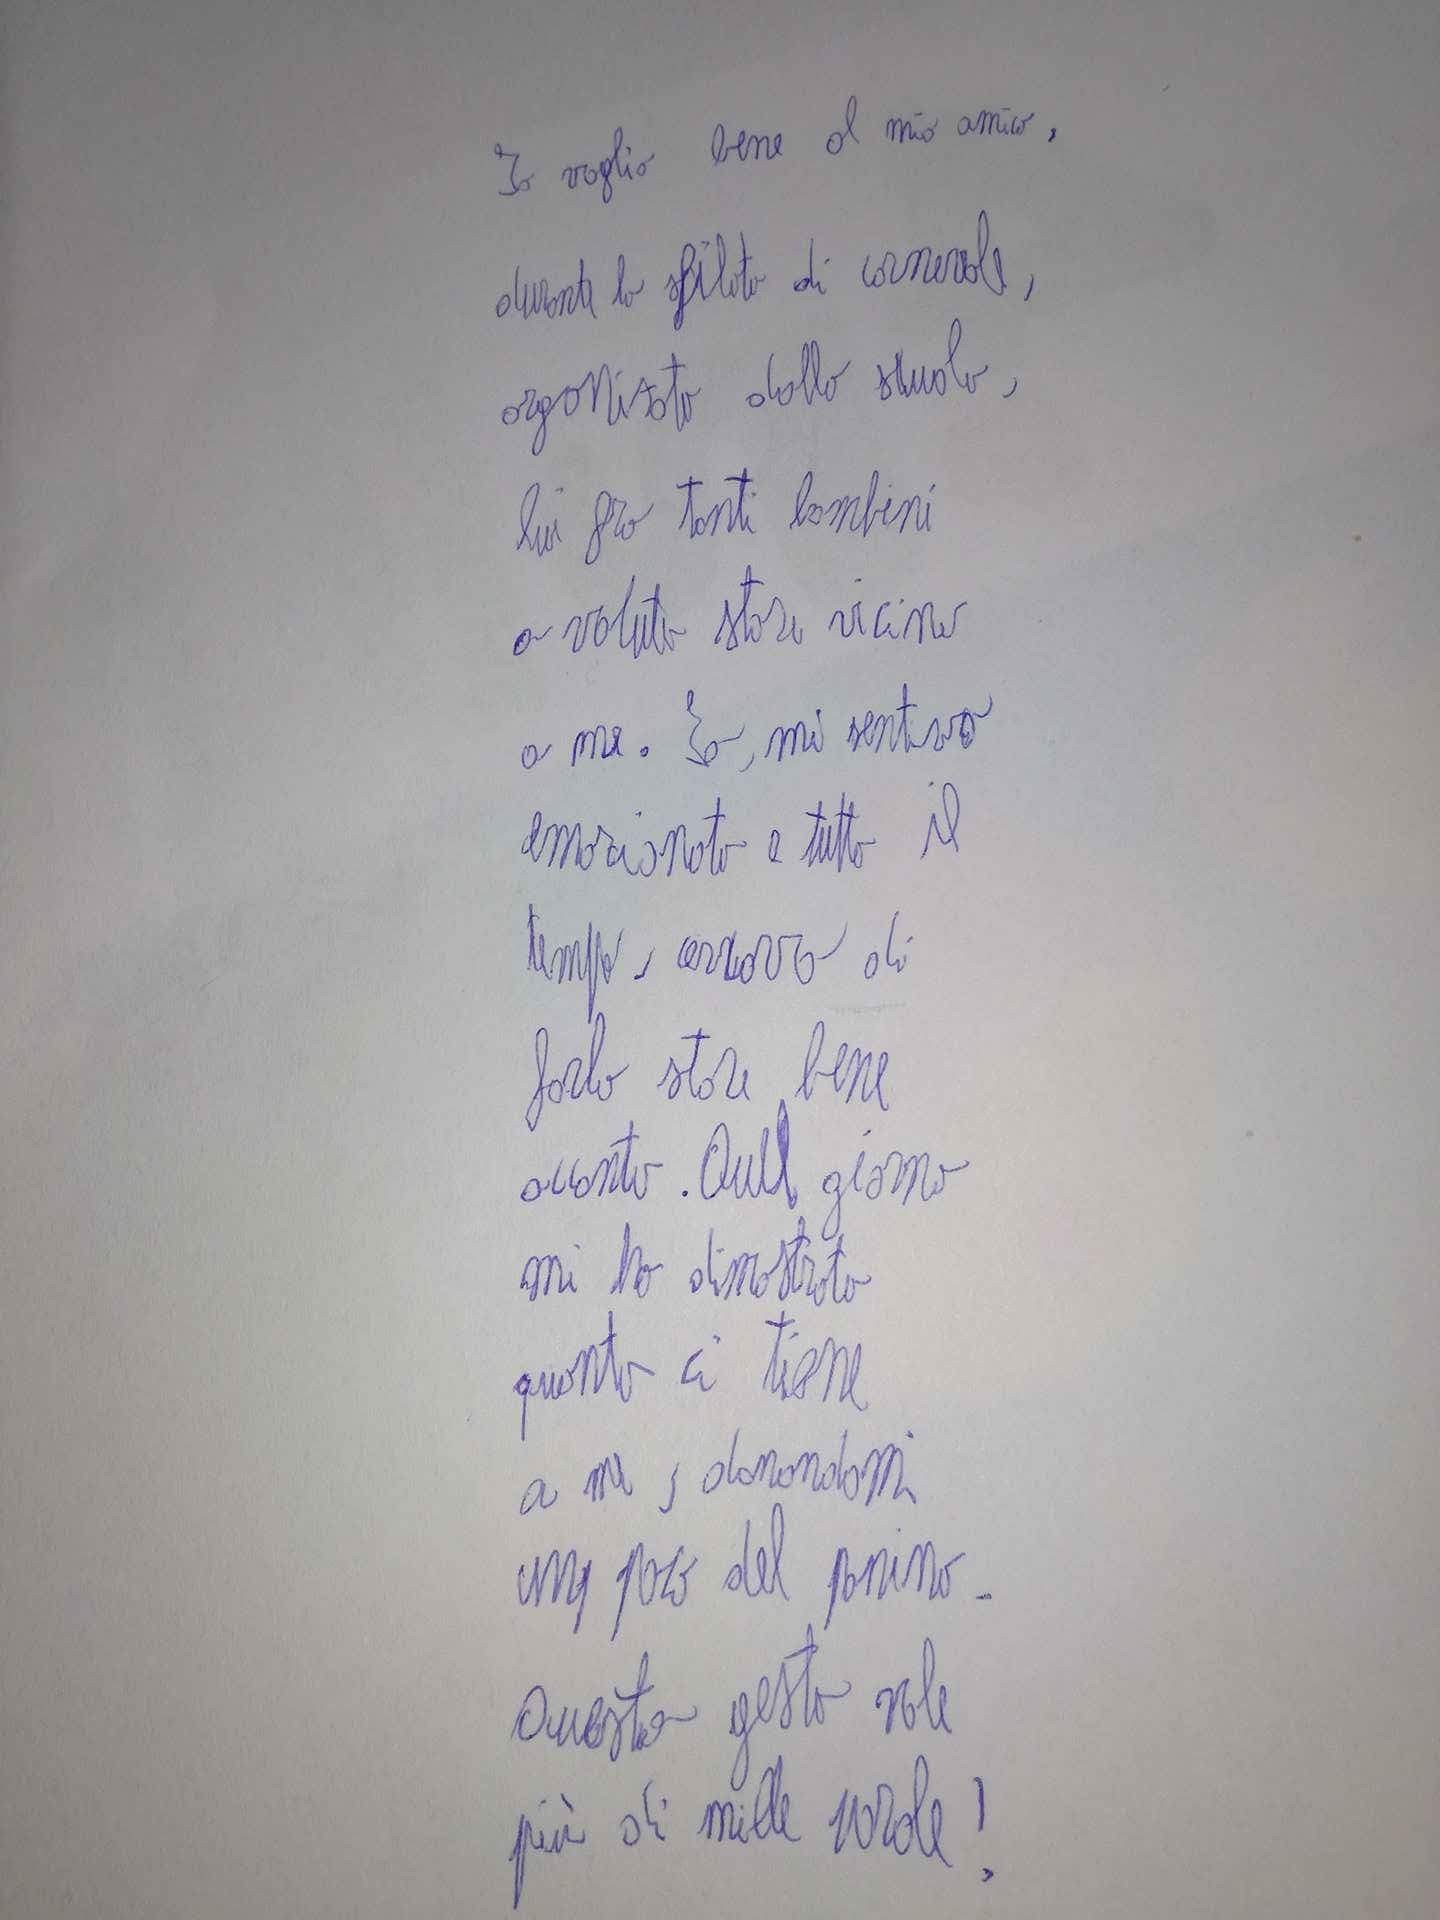 Io voglio bene al mio amico,
durante la sfilata di carnevale,
organizata dalla scuola,
lui fra tanti bambini
a voluto stare vicino
a me. Io, mi sentivo
emozionato e tutto il
tempo, cercavo di
farlo stare bene
accanto. Quell giorno
mi ha dimostrato
quanto ci tiene
a me, donandomi
un poco del panino.
Questo gesto vale
più di mille parole!